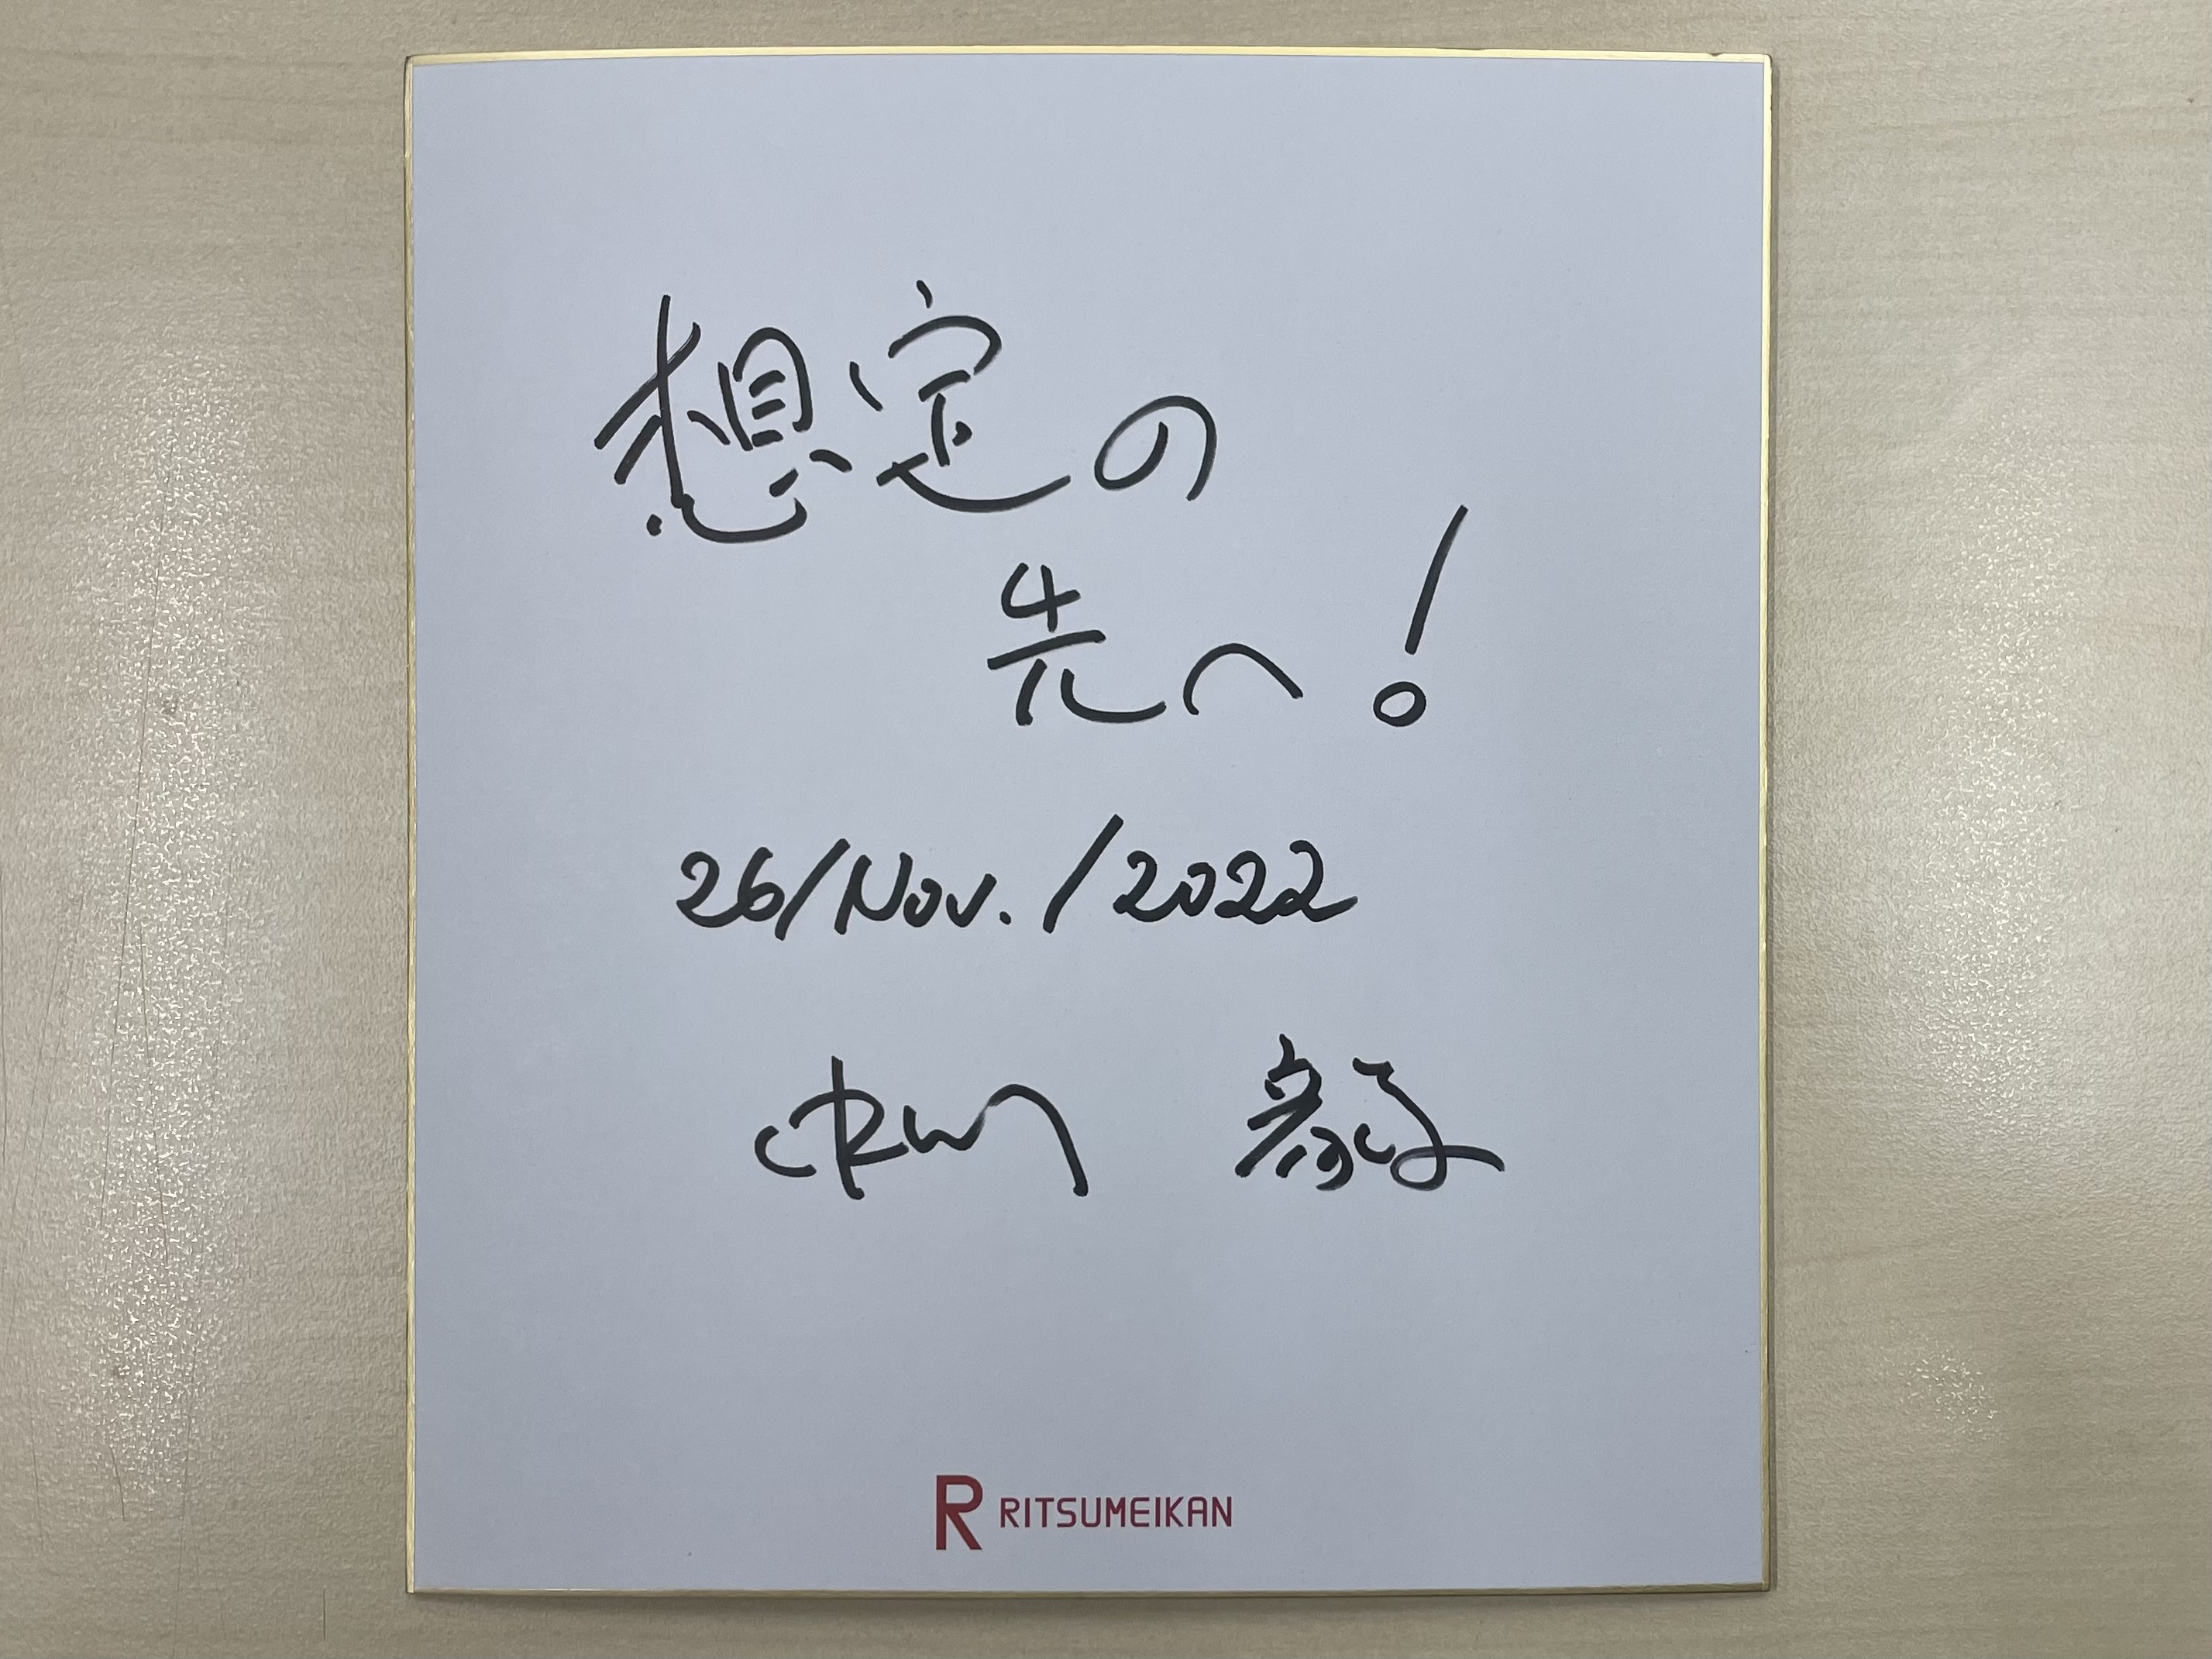 想定の
先へ!
26/Nov./2022
R RITSUMEIKAN